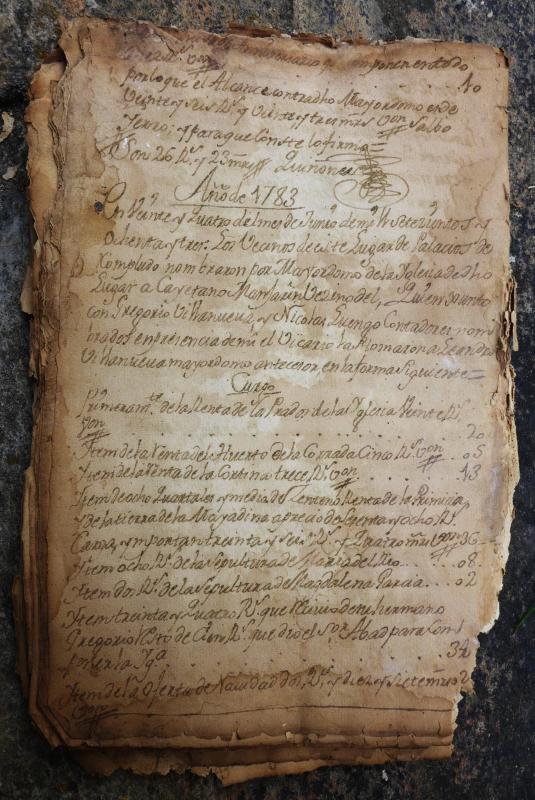 por lo que el Alcance contra dho Mayordomo es de
Veinte y seis Rs. y Veinte y tres mrs Von Salbo
Yerro; y para que Conste lo firmo =
Son 26 Rs. y 23 mrs Quiñones
Año de 1783
En Veinte y Quatro del mes de Junio de mil Setezientos y
Ochenta y tres: Los Vecinos de este Lugar de Palacios de
Compludo nombraron por Mayordomo de la Yglesia de dho
Lugar a Cayetano Vezino del, Quien Junto
con Gregorio Villanueva, y Nicolas Luengo Contadores nom
brados en presencia de mi el Vicario la tomaron a Leandro
Villanueva mayordomo antecesor en la forma siguiente =
Cargo
primeramte. de la Renta de los Prados de la Yglesia Veinte Rs.
Von . . . 20
Ytem de la Renta del Huerto de la Corrada Cinco Rs. Von . . 05
Ytem de la Renta de la Cortina trece Rs. Von . . . 13
Ytem de ocho Quartales y medio de Zenteno Renta de la Primicia
y de la tierra de la a precio de y ocho Rs.
Carga, y importan treinta y seis Rs. y Quatro mrs Von 36
Ytem ocho Rs. de la Sepultura de Maria del Rio . . . 08
Ytem dos Rs. de la Sepultura de Magdalena . . . 02
Ytem treinta y Quatro Rs. que Recivio de su hermano
Gregorio Resto de Cien Rs. que dio el Sor. Abad para Com
poner la Yga. . . . 34
Ytem de la Oferta de Navidad dos Rs. y diez y siete mrs 2
Von